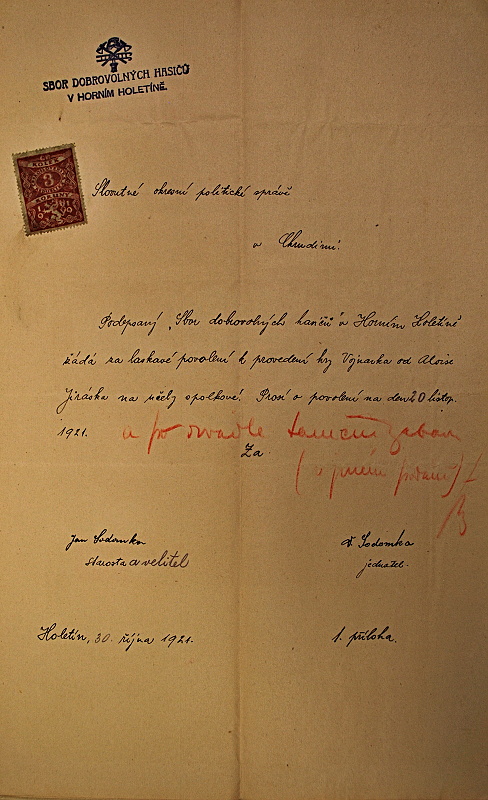 SBOR DOBROVOLNÝCH HASIČŮ
V HORNÍM HOLETÍNĚ.
KOLEK
3
KORUNY
Slovutné okresní politické správě
v Chrudimi.
Podepsaný „Sbor dobrovolných hasičů v Horním Holetíně
žádá za laskavé povolení k provedení hry Vojnarka od Aloise
Jiráska na účely spolkové. Prosí o povolení na den 20 listop.
1921. a po divadle taneční zábavu
Za
Jan Sodomka
starosta a velitel
V. Sodomka
jednatel.
Holetín, 30. října 1921.
1. příloha.